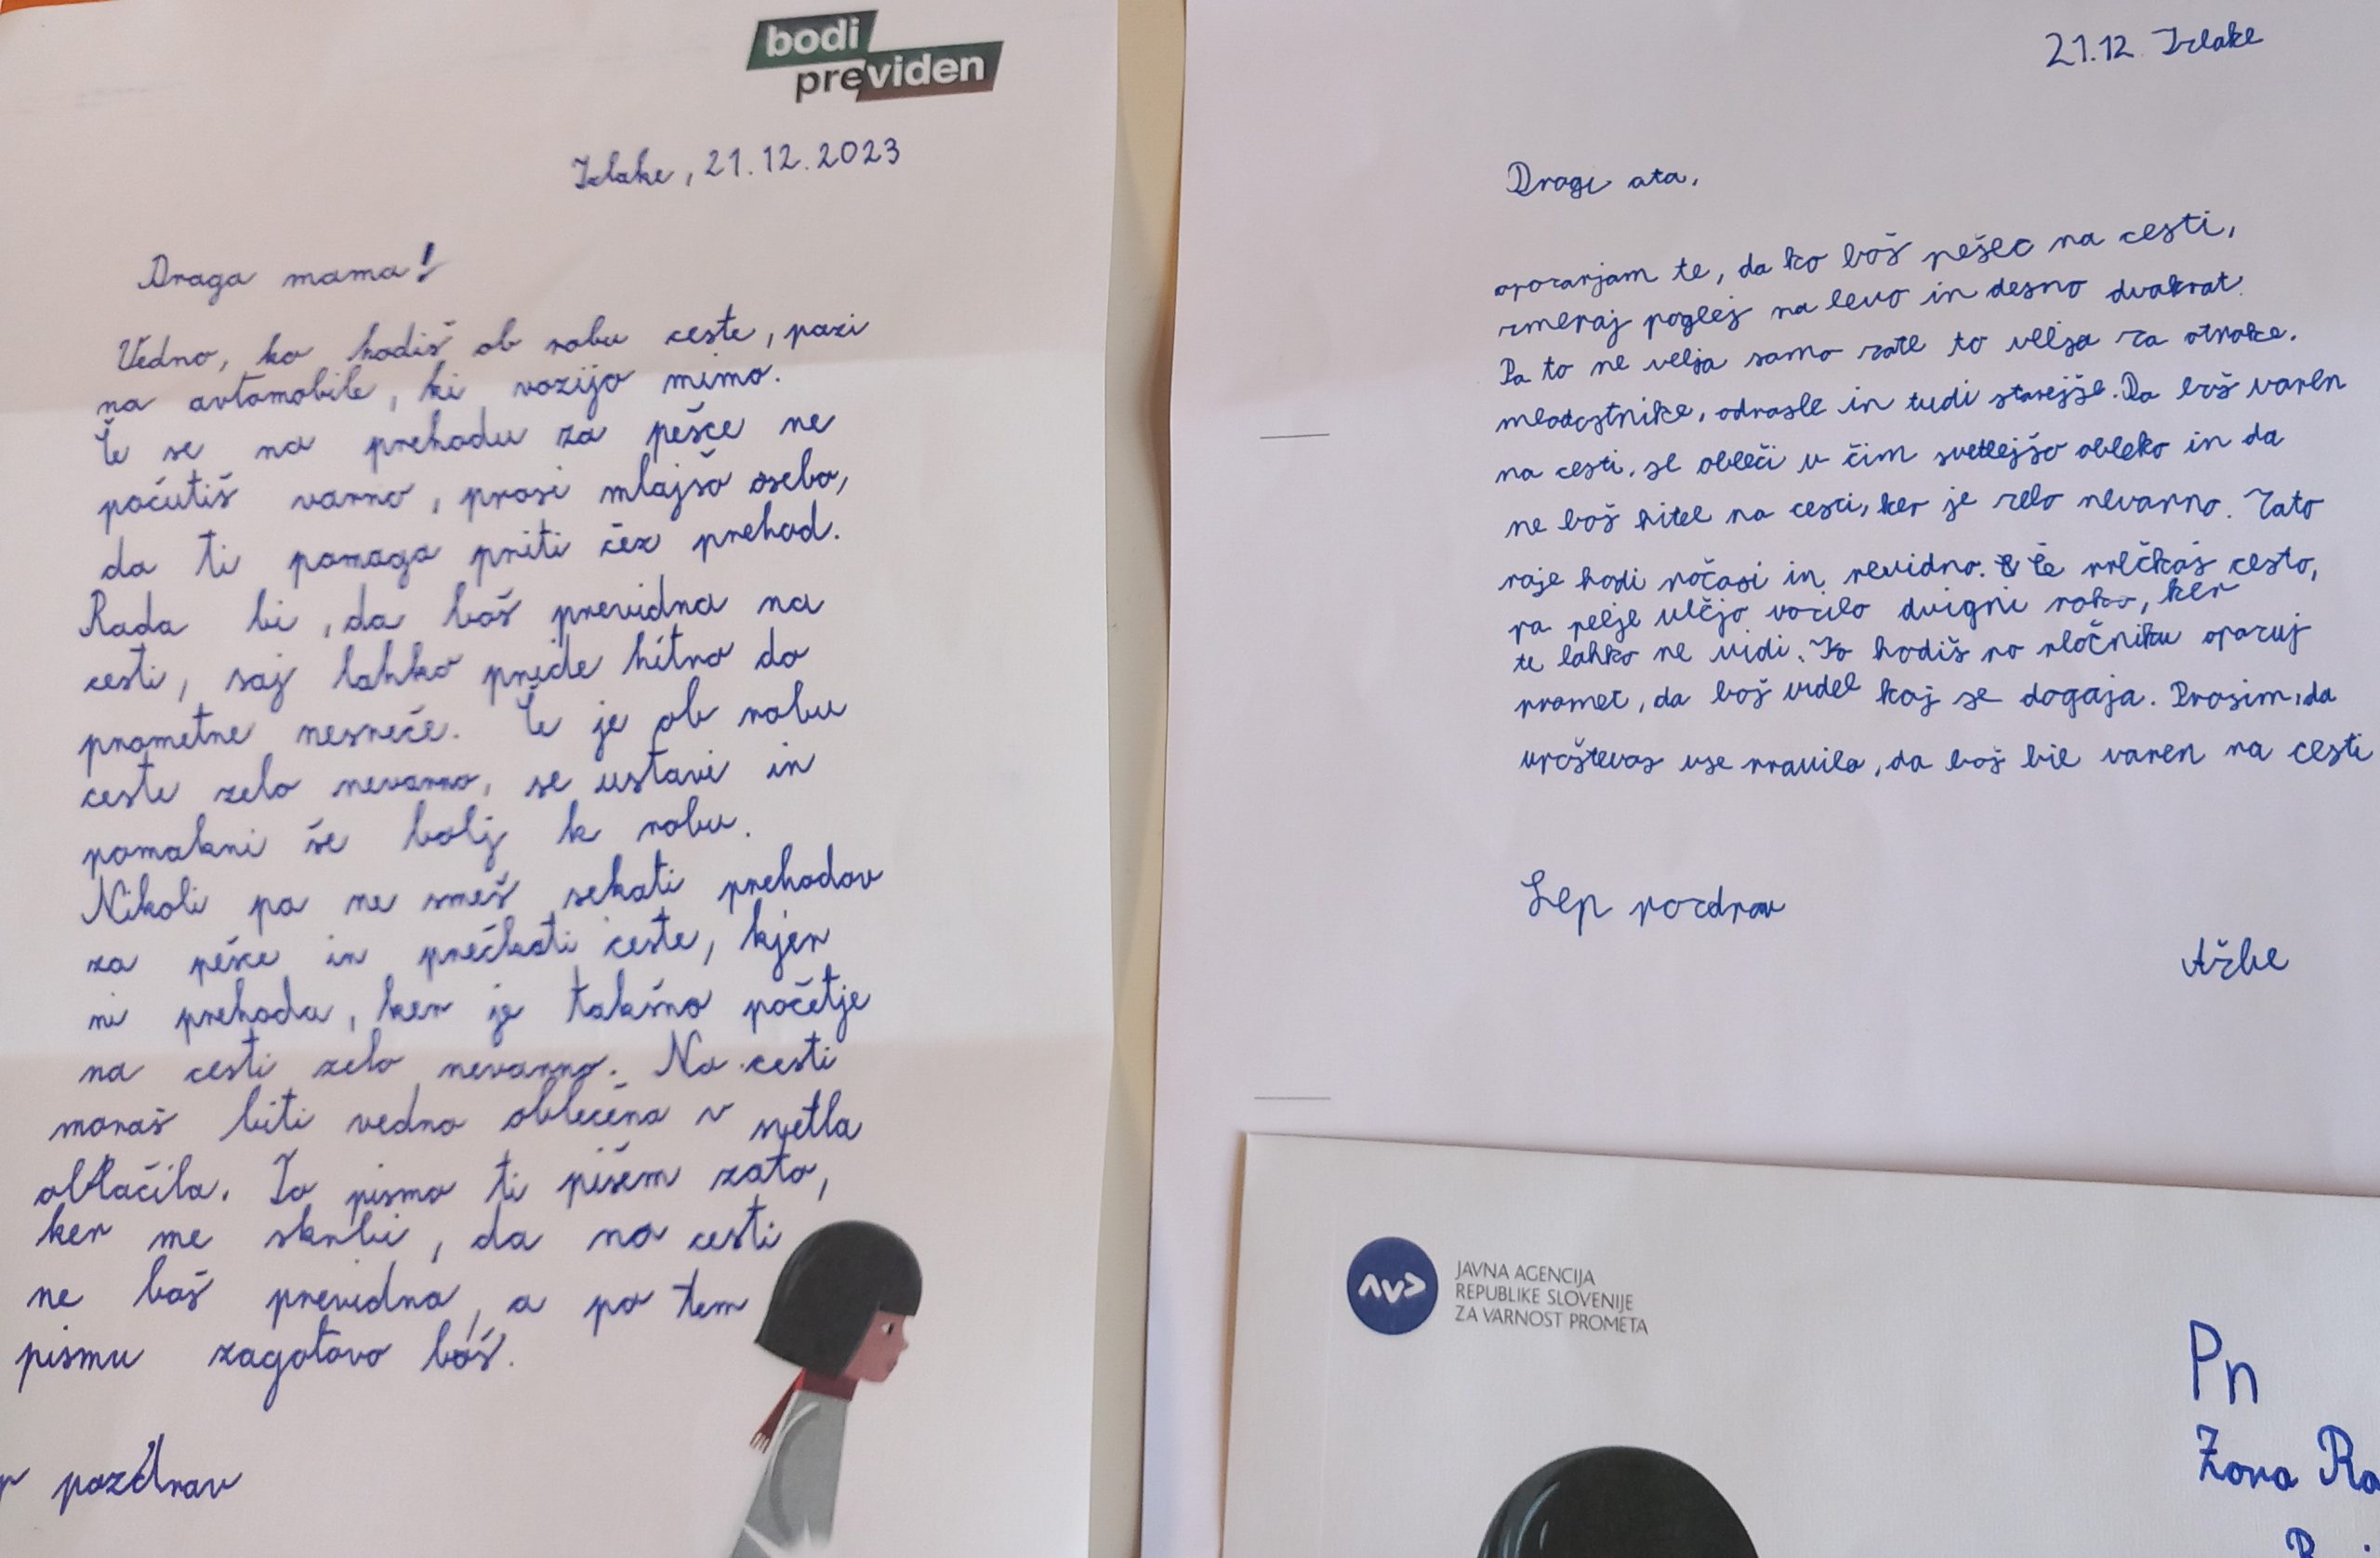 bodi
previden
Izlake, 21.12.2023
Draga mama!
Vedno, ko hodiš ob robu ceste, pazi
na avtomobile, ki vozijo mimo.
Če se na prehodu za pešce ne
počutiš varno, prosi mlajšo osebo,
da ti pomaga priti čez prehod.
Rada bi, da boš previdna na
cesti, saj lahko pride hitro do
prometne nesreče. Če je ob robu
ceste zelo nevarno, se ustavi in
pomakni še bolj k robu.
Nikoli pa ne smeš sekati prehodov
za pešce in prečkati ceste, kjer
ni prehoda, ker je takšno početje
na cesti zelo nevarno. Na cesti
moraš biti vedno oblečena v svetla
oblačila. To pismo ti pišem zato,
ker me skrbi, da na cesti
ne boš previdna, a po tem
pismu zagotovo boš.
pozdrav
21.12 Izlake
Dragi ata,
opozarjam te, da ko boš pešec na cesti,
zmeraj poglej na levo in desno dvakrat.
Pa to ne velja samo zate to velja za otroke,
mladostnike, odrasle in tudi starejše. Da boš varen
na cesti, se obleči v čim svetlejšo obleko in da
ne boš hitel na cesti, ker je zelo nevarno. Zato
raje hodi počasi in previdno. Če prečkaš cesto,
pa pelje večjo vozilo dvigni roko, ker
te lahko ne vidi. Ko hodiš po pločniku opazuj
promet, da boš videl kaj se dogaja. Prosim, da
upoštevaš vse pravila, da boš bil varen na cesti
Lep pozdrav
Ažbe
JAVNA AGENCIJA
REPUBLIKE SLOVENIJE
ZA VARNOST PROMETA
Pn
Zora